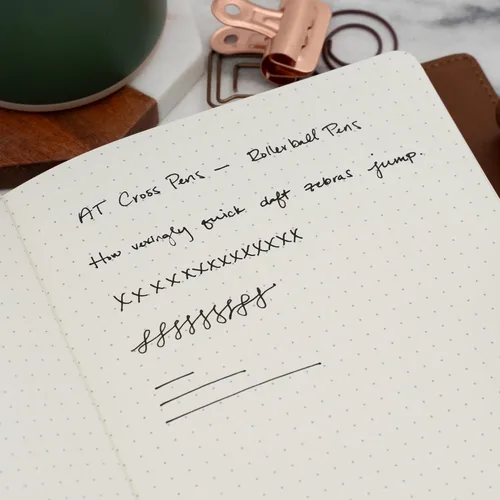 AT Cross Pens — Rollerball Pens
How vexingly quick daft zebras jump.
XXXXXXXXXXXXXX